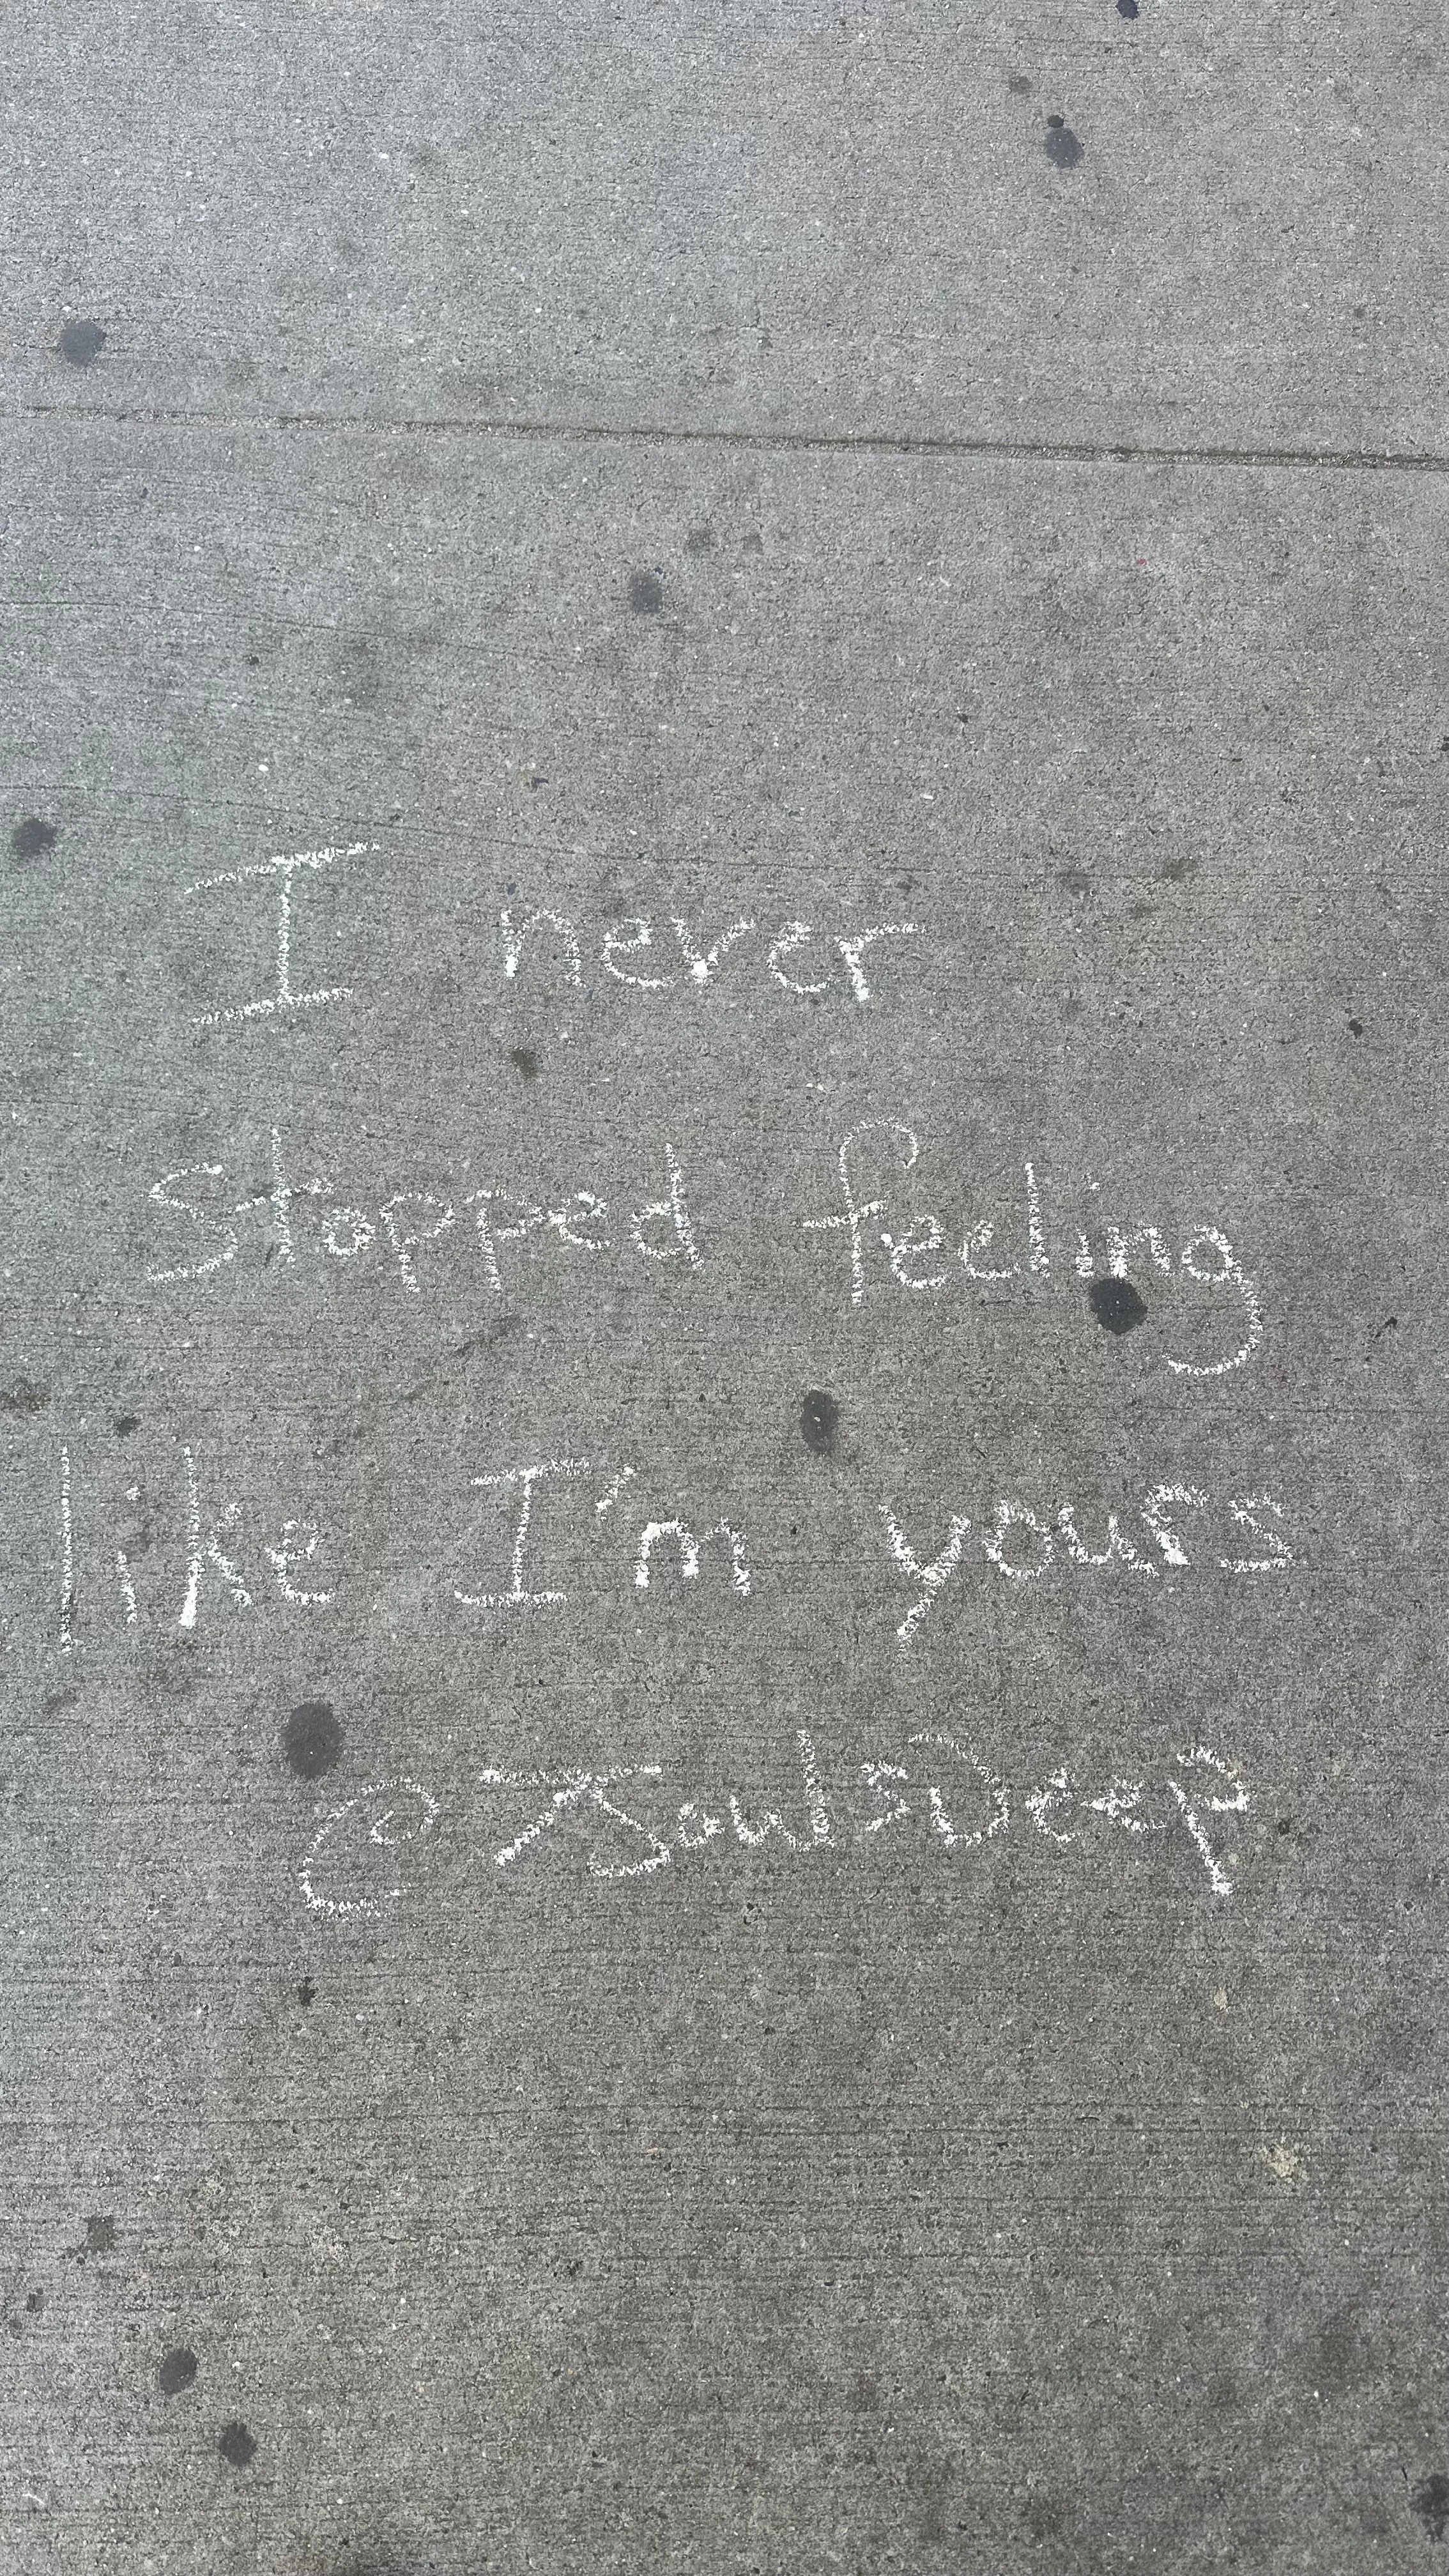 I never
Stopped feeling
like I'm yours